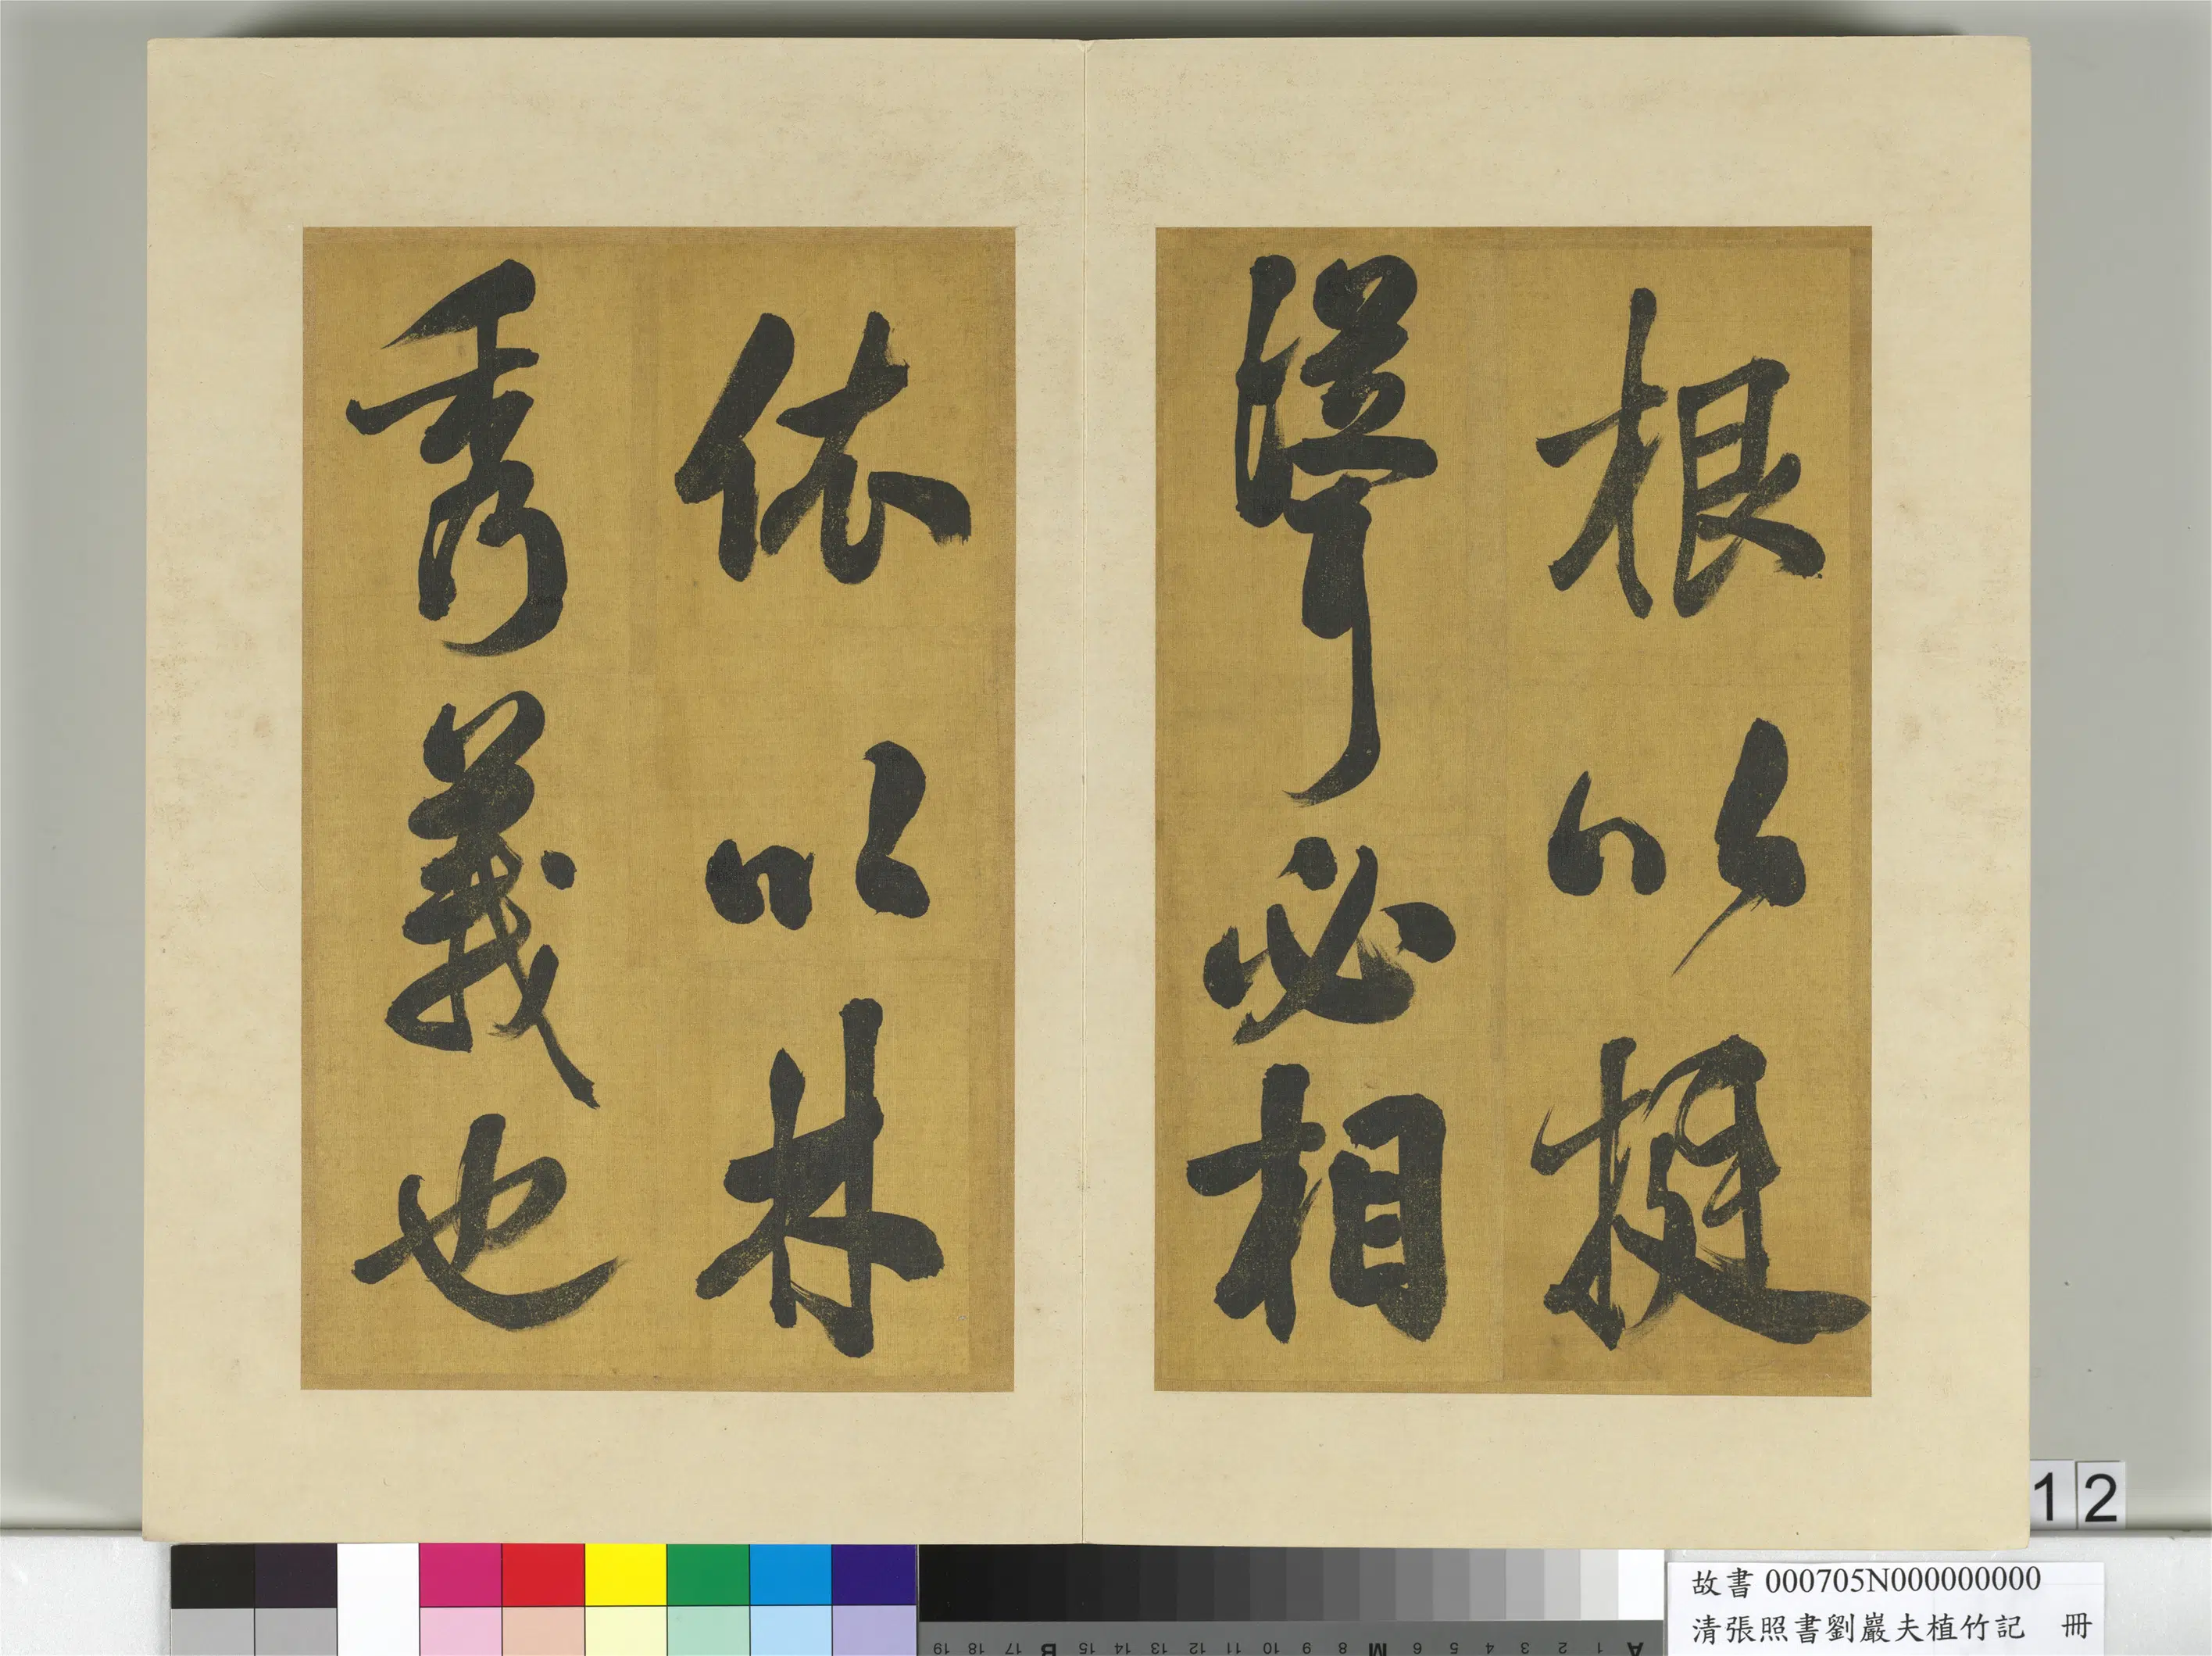 根以挺
聳必相
依以林
秀義也
12
故書 000705N000000000
清張照書劉巖夫植竹記 冊
A 1 2 3 4 5 6 M 8 9 10 11 12 13 14 15 B 17 18 19